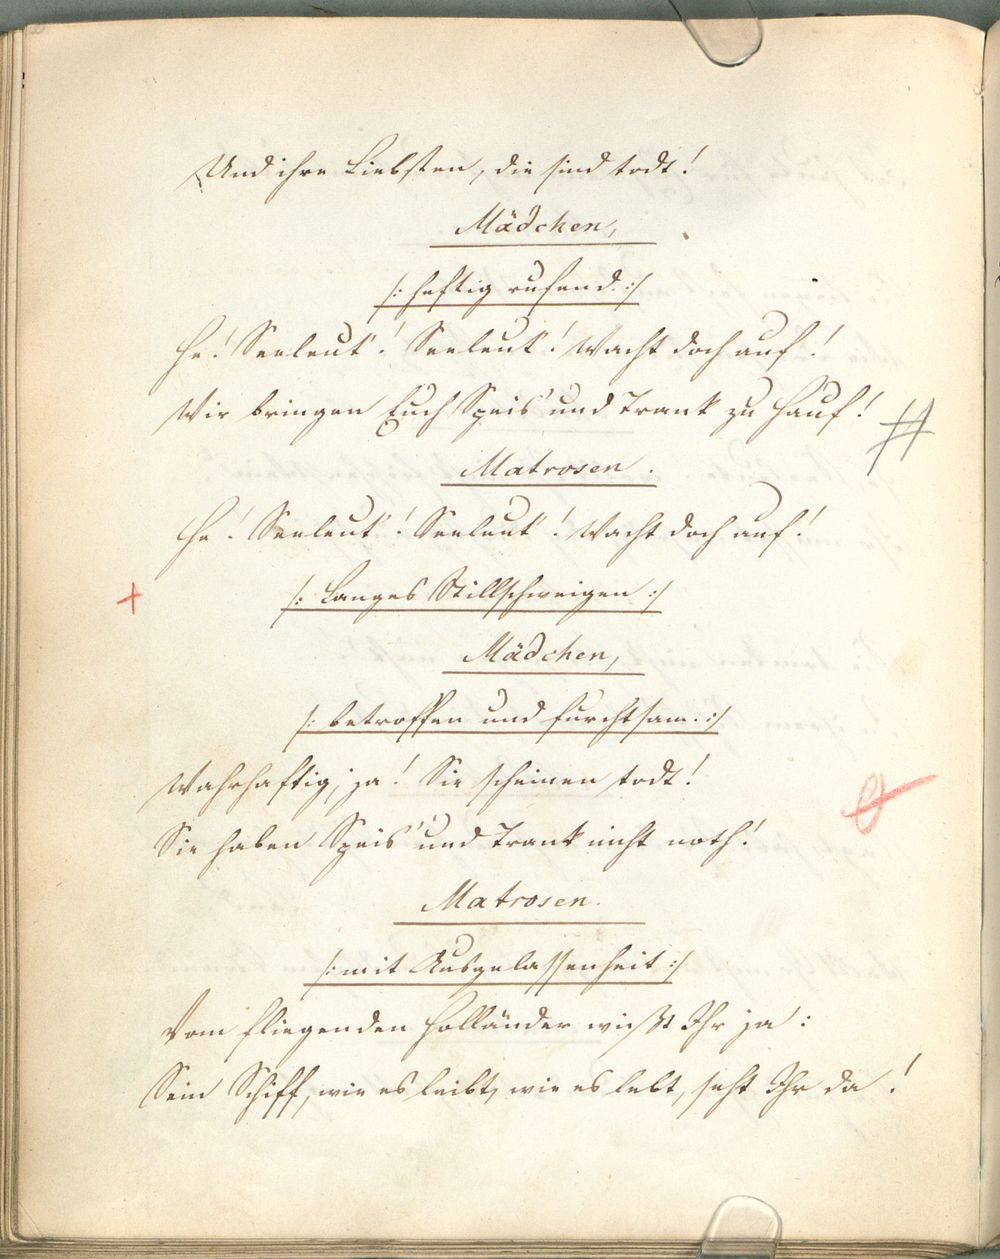 Und ihre Liebsten, die sind todt!
Mädchen,
/: heftig rufend. :/
He! Seeleut'! Seeleut'! Wacht doch auf!
Wir bringen Euch Speis' und Trank zu Hauf!
Matrosen.
He! Seeleut'! Seeleut'! Wacht doch auf!
/: Langes Stillschweigen :/
Mädchen,
/: betroffen und furchtsam. :/
Wahrhaftig, ja! Sie scheinen todt!
Sie haben Speis' und Trank nicht noth!
Matrosen.
/: mit Ausgelassenheit :/
Vom fliegenden Holländer wißt Ihr ja:
Sein Schiff, wie es leibt, wie es lebt, seht Ihr da!